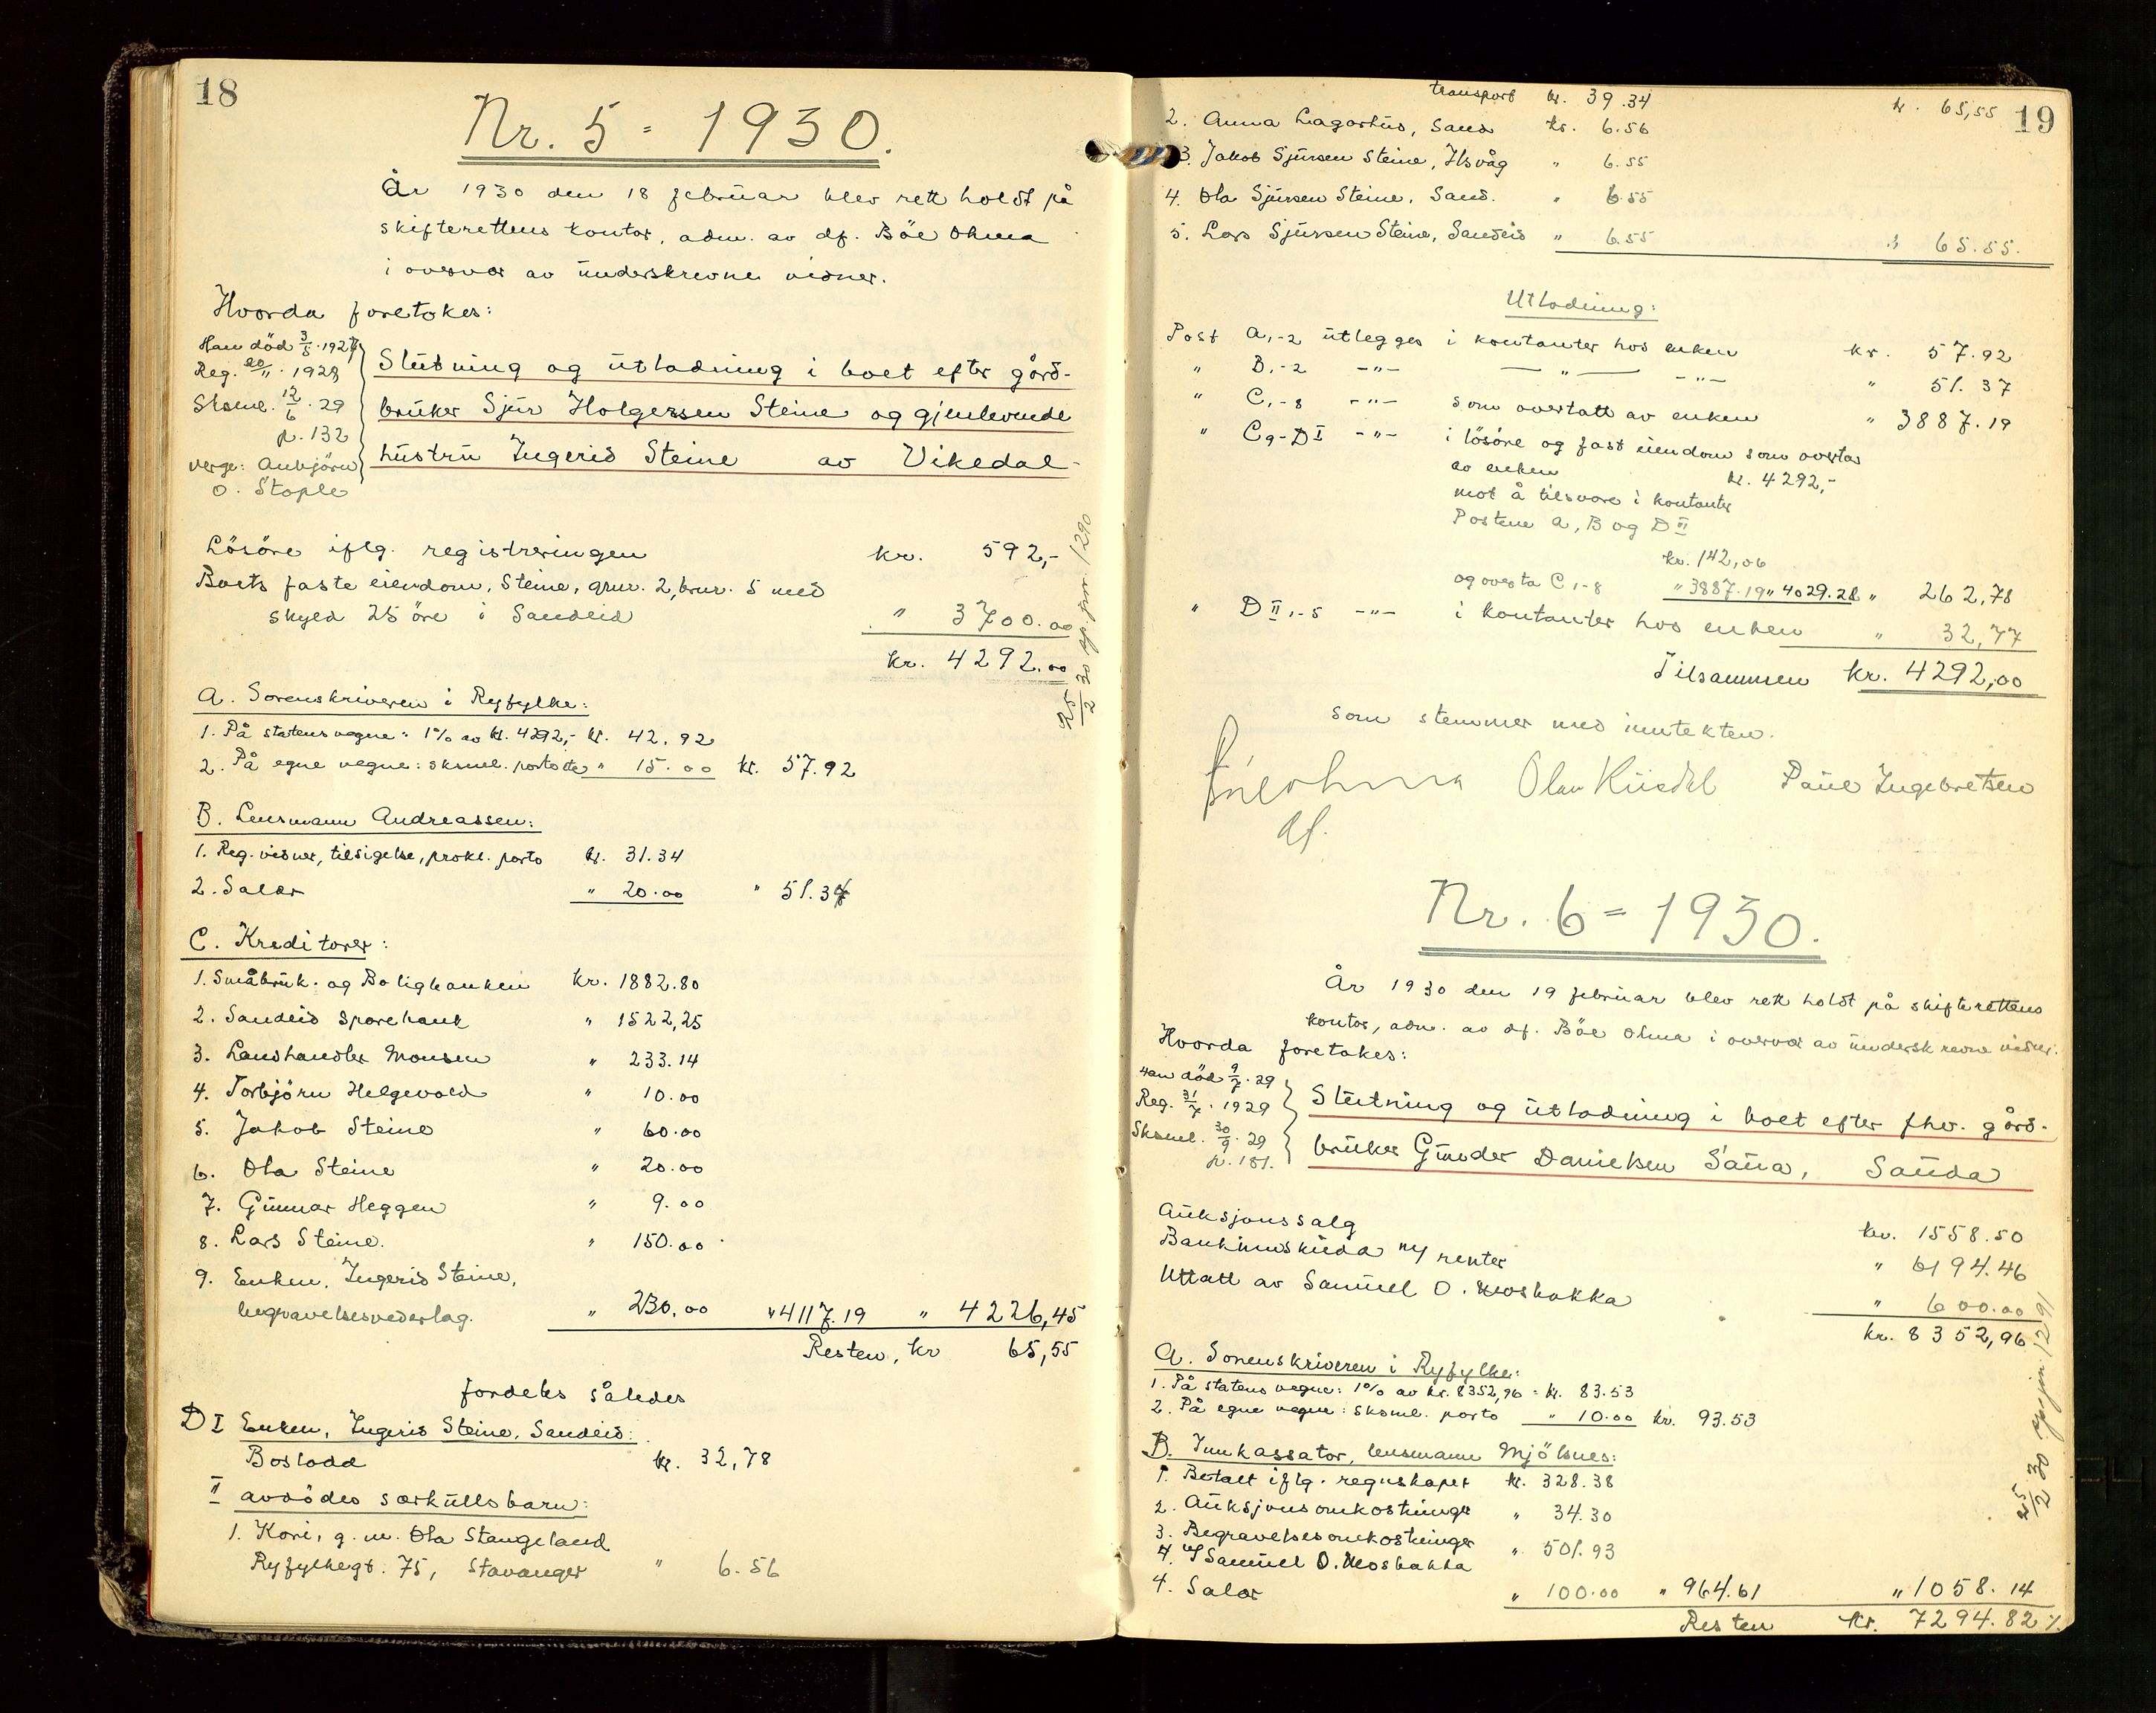 18
Nr. 5 = 1930.
År 1930 den 18 februar blev rett holdt på
skifterettens kontor, adm. av df. Böe Ohma
i overvær av underskrevne vidner.
Hvorda foretokes:
Han död 3/5. 1927
Reg. 20/11. 1928
Sksml. 12/6. 29
p. 132
Verge: Anbjörn
O. Stople
Slutning og utlodning i boet efter gård-
bruker Sjur Holgersen Steine og gjenlevende
hustru Ingerid Steine av Vikedal
Lösöre iflg. registreringen kr. 592,-
Boets faste eiendom, Steine, gnr. 2, bnr. 5 med
skyld 25 öre i Sandeid " 3700.00
kr. 4292.00
25/2 30 gp. jnr. 1290
A. Sorenskriveren i Ryfylke:
1. På statens vegne: 1% av kr. 4292,- kr. 42.92
2. På egne vegne: sksml. porto etc " 15.00 kr. 57.92
B. Lensmann Andreassen:
1. Reg. vidner, tilsigelse, prokl. porto kr. 31.34
2. Salær " 20.00 " 51.34
C. Kreditorer:
1. Småbruk- og Boligbanken kr. 1882.80
2. Sandeid Sparebank " 1522,25
3. Landhandler Monsen " 233.14
4. Torbjörn Helgevold " 10.00
5. Jakob Steine " 60.00
6. Ola Steine " 20.00
7. Gunnar Heggen " 9.00
8. Lars Steine. " 150.00
9. Enken, Ingerid Steine,
begravelsesvederlag. " 230.00 " 4117.19 " 4226,45
Resten, kr 65,55
fordeles således
D I Enken, Ingerid Steine, Sandeid:
Boslodd kr. 32,78
II avdödes særkullsbarn:
1. Kari, g. m. Ola Stangeland
Ryfylkegt. 75, Stavanger " 6.56
19
transport kr. 39.34 kr. 65,55
2. Anna Lagarhus, Sand kr. 6.56
3. Jakob Sjursen Steine, Ilsvåg " 6.55
4. Ola Sjursen Steine, Sand. " 6.55
5. Lars Sjursen Steine, Sandeid " 6.55 " 65.55.
Utlodning:
Post A, 1-2 utlegges i kontanter hos enken kr. 57.92
" B, 1-2 -"- — " — -"- " 51.37
" C, 1-8 -"- som overtatt av enken " 3887.19
" C9-D I -"- i lösöre og fast eiendom som overtas
av enken kr. 4292,-
mot å tilsvare i kontanter
Postene A, B og D II
kr. 142,06
og overta C 1-8 " 3887.19 " 4029.28 " 262,78
" D II 1-5 -"- i kontanter hos enken " 32,77
Tilsammen kr. 4292,00
som stemmer med inntekten.
Böe Ohma Olav Kusdal Paul Ingebretsen
df.
Nr. 6 = 1930.
År 1930 den 19 februar blev rett holdt på skifterettens
kontor, adm. av df. Böe Ohma i overvær av underskrevne vidner.
Hvorda foretokes:
Han död 9/7. 29
Reg. 31/7. 1929
Sksml. 30/9. 29
p. 151.
Slutning og utlodning i boet efter fhv. gård-
bruker Gunder Danielsen Saua, Sauda
Auksjonssalg kr. 1558.50
Bankinnskudd m/ renter " 6194.46
Uttatt av Samuel O. Mosbakka " 600.00
kr. 8352,96
25/2 30 gp. jnr. 1291
A. Sorenskriveren i Ryfylke:
1. På statens vegne: 1% av kr. 8352,96 = kr. 83.53
2. På egne vegne: sksml. porto " 10.00 kr. 93.53
B. Innkassator, lensmann Mjölsnes:
1. Betalt iflg. regnskapet kr. 328.38
2. Auksjonsomkostninger " 34.30
3. Begravelsesomkostninger
v/ Samuel O. Mosbakka " 501.93
4. Salær " 100.00 " 964.61 " 1058.14
Resten kr. 7294.82 ./.